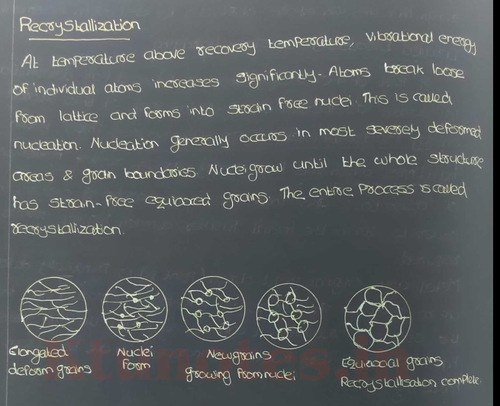 Recrystallization
At temperature above recovery temperature, vibrational energy
of individual atoms increases significantly. Atoms break loose
from lattice and forms into strain free nuclei. This is called
nucleation. Nucleation generally occurs in most severely deformed
areas & grain boundaries. Nuclei grow until the whole structure
has strain-free equiaxed grains. The entire process is called
recrystallization.
Elongated
deform grains
Nuclei
form
New grains
growing from nuclei
Equiaxial grains
Recrystallisation complete.